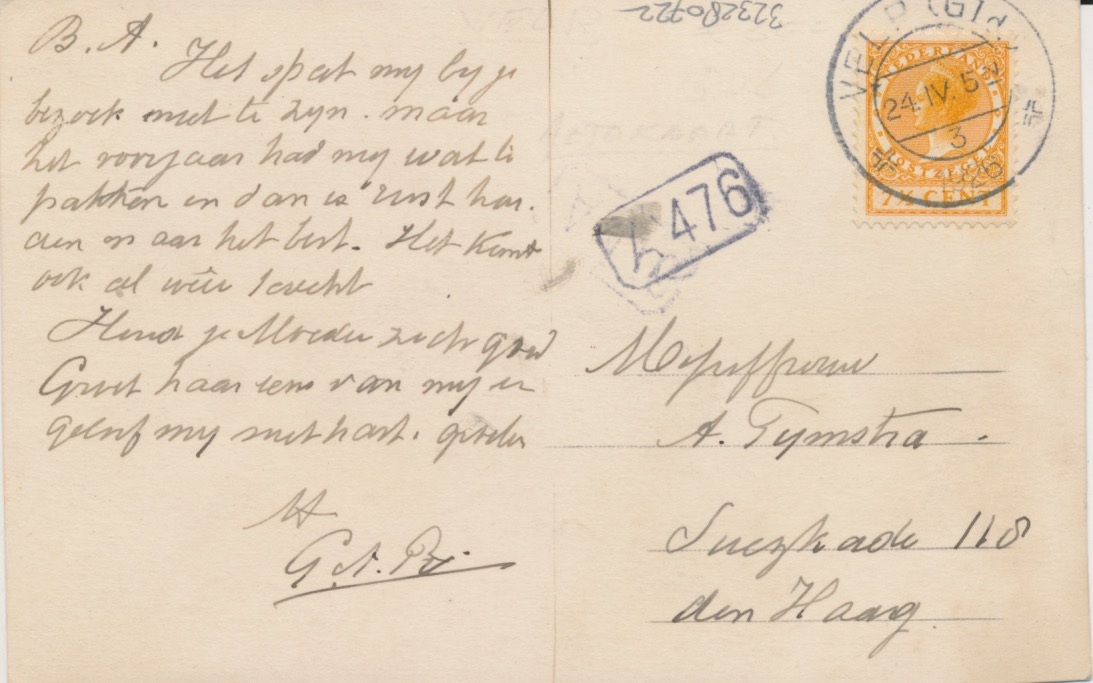 B. A.
Het spat my by je
bezoek niet te zyn. maar
het voorjaar had my wat te
pakken en dan is rust hou-
den maar het best. Het komt
ook al weer terecht
Houd je Moeder zich goed
Groet haar eens van my en
geloof my met hart. groeten
G. A.
32328 0722
VELP (Gld.)
24.IV. 5
3
1926
NEDERLAND
POSTZEGEL
7½ CENT
h 476
Mejuffrouw
A. Tymstra.
Suezkade 118
den Haag